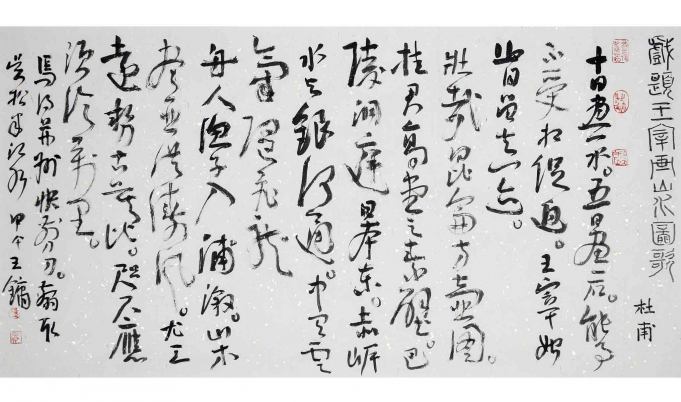 戲題王宰画山水圖歌
杜甫
十日畫一水。五日畫一石。能事
不受相促迫。王宰始
肯留真迹。
壯哉昆侖方壺圖。
挂君高堂之素壁。巴
陵洞庭日本東。赤岸
水与銀河通。中有雲
氣隨飛龍
舟人漁子入浦溆。山木
盡亞洪濤風。尤工
遠勢古莫比。咫尺應
須论萬里。
焉得并州快剪刀。翦取
吴松半江水 甲午王鏞